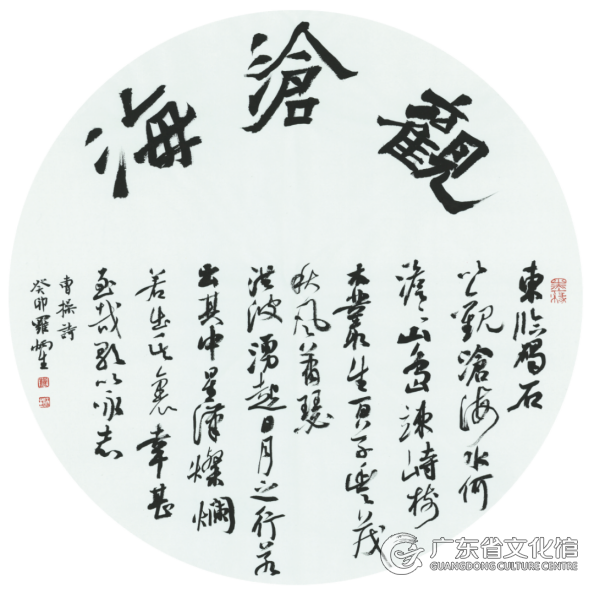 觀滄海
東臨碣石
以觀滄海水何
澹澹山島竦峙樹
木叢生百草豐茂
秋風蕭瑟
洪波湧起日月之行若
出其中星漢燦爛
若出其裏幸甚
至哉歌以詠志
曹操詩
癸卯羅炳生
广东省文化馆
GUANGDONG CULTURE CENTRE